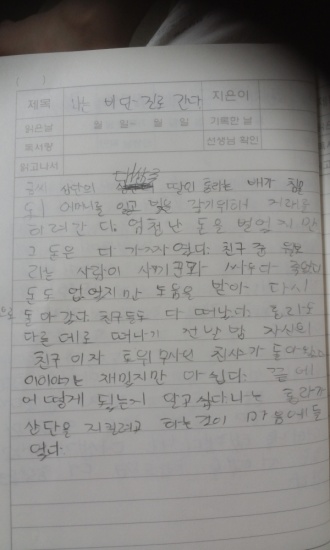 제목 나는 비단 길로 간다 지은이
읽은날 월 일 월 일 기록한 날
독서량 선생님 확인
읽고나서 대상주
금씨 상단의 딸인 홍라는 배가 침
몰 어머니를 잃고 빚을 갚기위해 거래를
하러간다. 엄청난 돈을 벌었지만
그 돈은 다 가짜였다. 친구 중
라는 사람이 사기꾼과 싸우다 죽었다
돈도 없었지만 도움을 받아 다시
돌아갔다 친구들도 다 떠났다. 홍라도
다른 데로 떠나기 전날 밤 자신의
친구 이자 호위무사인 친샤가 돌아왔다
이이야기는 재밌지만 아쉽다. 끝에
어떻게 됬는지 알고싶다 나는 홍라가
상단을 지킬려고 하는것이 마음에들
었다